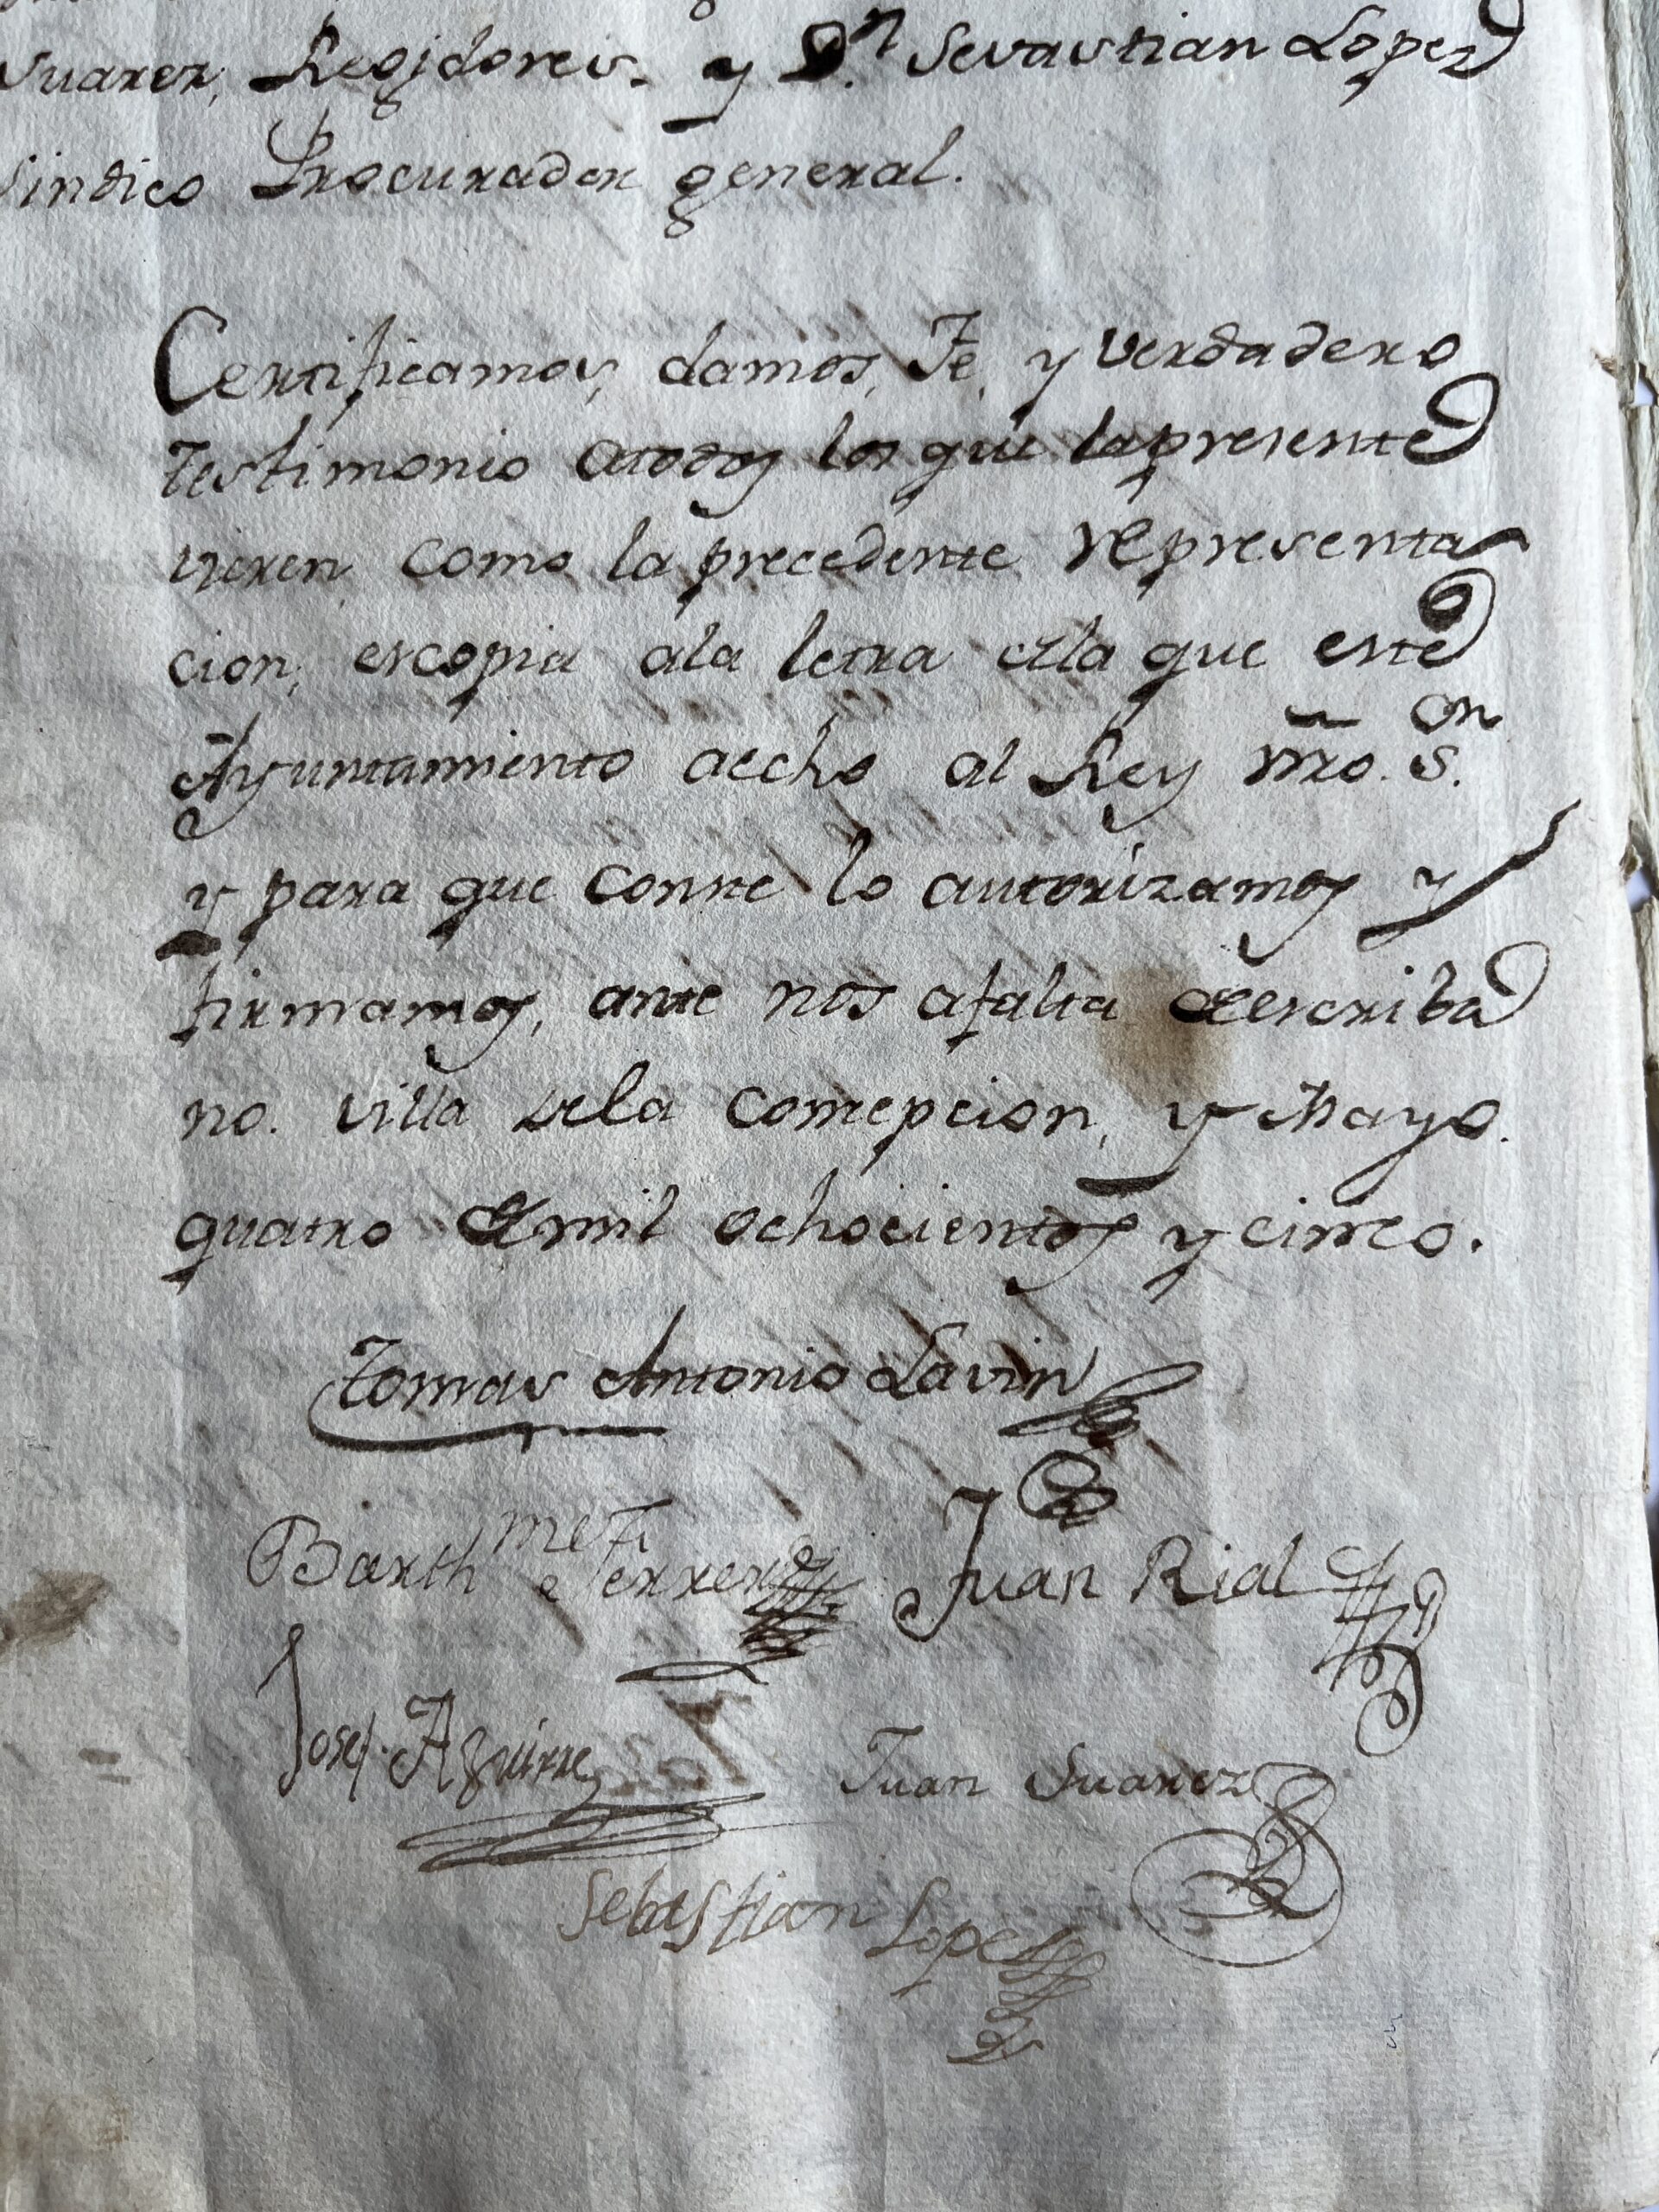 Suarez, Regidores. y Dn. Sevastian Lopez
Sindico Procurador general.
Certificamos, damos, Fe, y verdadero
testimonio atodos los que lapresente
vieren como la precedente representa
cion, escopia ala letra dela que este
Ayuntamiento aecho al Rey ñro. S.or
y para que conste lo autorizamos y
firmamos, ante nos afalta deescriba
no. villa dela Comcepcion, y Mayo.
quatro de mil ochocientos y cinco.
Tomas Antonio Lavin
Barthme Ferrer Juan Rial
Josef Aguirre Juan Suarez
Sebastian Lopez